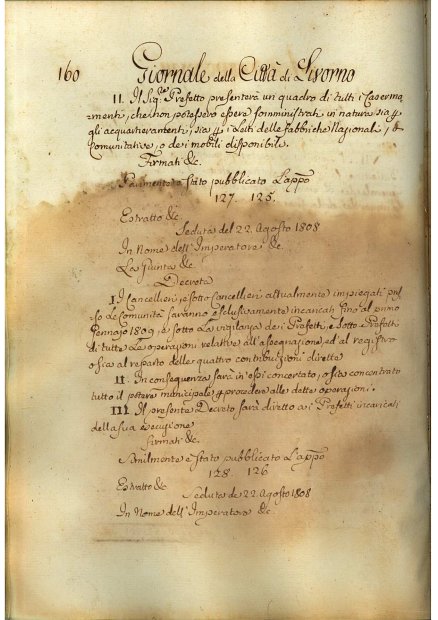 160 Giornale della Città di Livorno
II. Il Sig.re Prefetto presenterà un quadro di tutti i Caserma
menti, che non potessero essere somministrati in natura sia p
gli acquartieramenti, sia p i Letti delle fabbriche Nazionali, &
Comunitative, o dei mobili disponibile.
Firmati &c.
Parimente è stato pubblicato L'appo
127. 125.
Estratto &c.
Seduta del 22. Agosto 1808
In Nome dell'Imperatore &c.
La Giunta &c.
Decreta
I. I Cancellieri, e sotto Cancellieri attualmente impiegati pres
so le Comunità saranno esclusivamente incaricati fino al primo
Gennajo 1809, e sotto la vigilanza dei Prefetti, e Sotto Prefetti
di tutte le operazioni relative all'assegnazione, ed al registro
ossia al reparto delle quattro contribuzioni dirette
II. In conseguenza sarà in essi concertato, o sia concentrato
tutto il potere municipale p procedere alle dette operazioni.
III. Il presente Decreto sarà diretto ai Prefetti incaricati
della sua esecuzione
firmati &c.
Similmente è stato pubblicato L'appo
128. 126
Estratto &c.
Seduta de 22. Agosto 1808
In Nome dell'Imperatore &c.